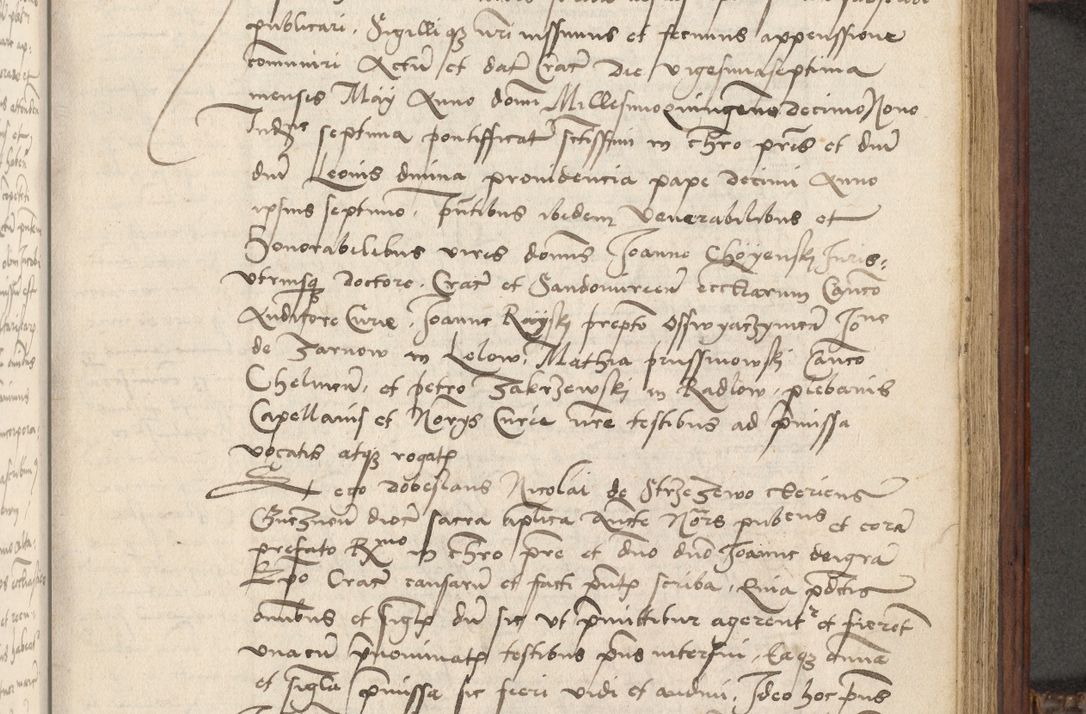 publicari, Sigilliq3 nri iussimus et fecimus appenssione
comuniri Actu et dat Crac die vigesimaseptima
mensis May Anno domi Millesimoquingenno decimo Nono
Indne septima pontifficat sctissimi in chro pris et dni
dni Leonis divina providencia pape decimi Anno
ipsius septimo, pntibus ibidem Venerabilibus et
Honorabilibus viris domis Joanne Choyensky Juris,
vtriusq3 doctore, Crac et Sandomirien eccliarum Canco
Auditore Curie, Joanne Rayski prepto Osswyaczymen Jone
de Zarnow in Lelow, Mathia prussinowski Canco
Chelmen, et petro Zakrzewski in Radlow, plebanis
Capellanis et Norys Curie nre testibus ad pmissa
vocatis atq3 rogatis
Et ego dobeslaus Nicolai de Strzezewo clericus
Gneznen dioc sacra aplica Aucte Nors pubcus et cora
prefato Rmo in chro pre et dno dno Joanne dei gra
Epo Crac causaru et facti pntis scriba, Quia pdctis
omibus et singlis du sic vt pmittitur agerentr et fierent
vnacu pnominatis testibus pns interfui, Eaq3 omia
et singla pmissa sic fieri vidi et audivi, Ideo hoc pns